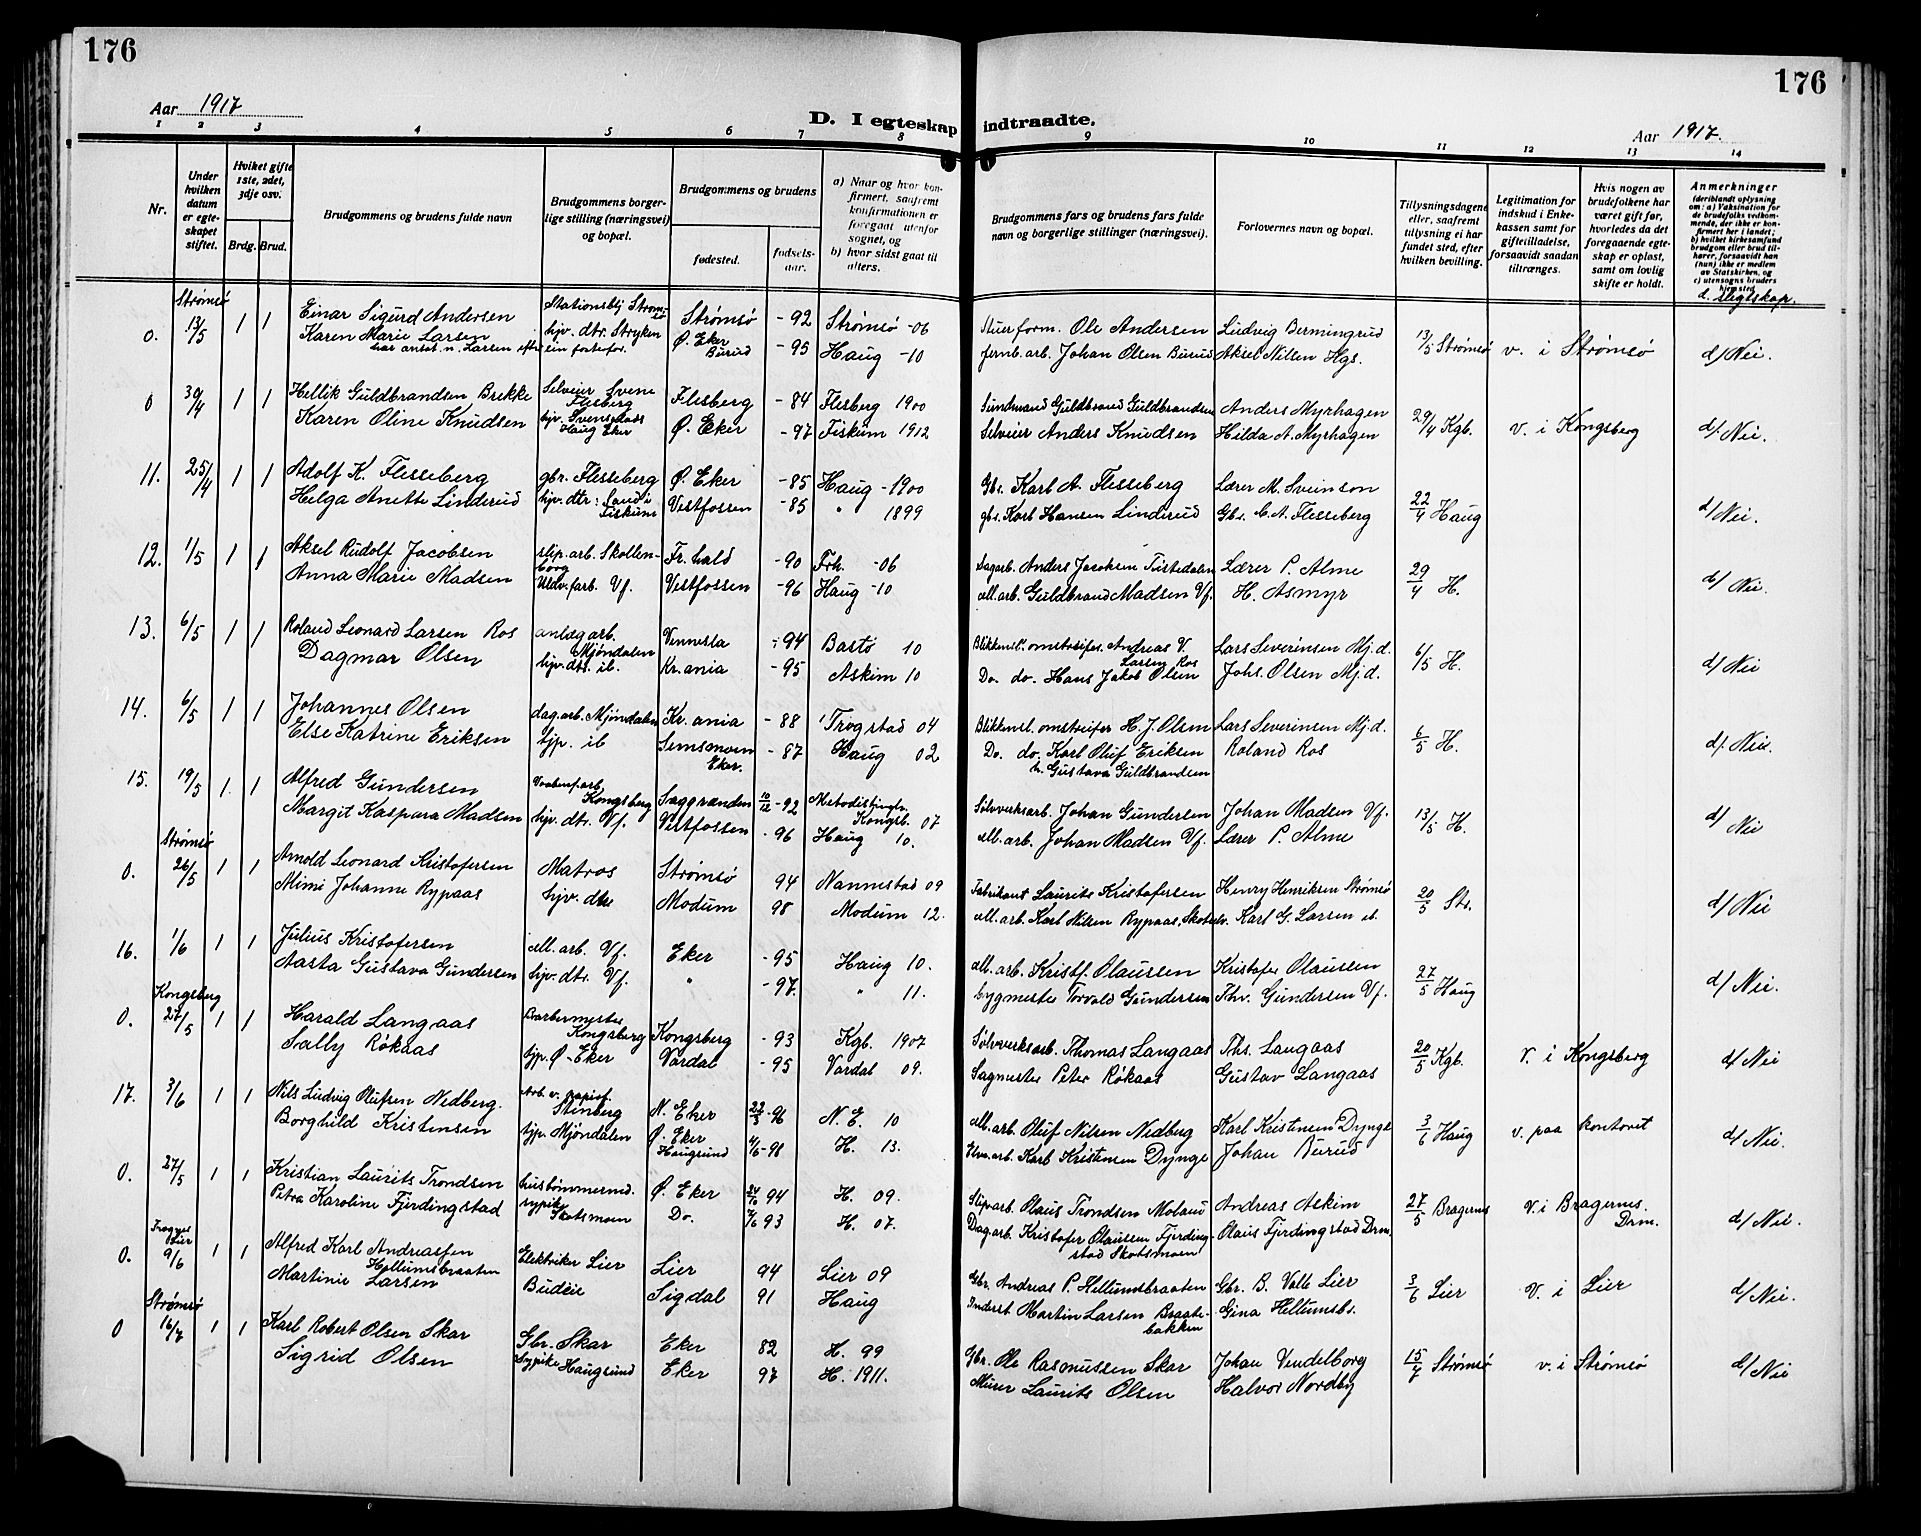 176
176
Aar 1917
D. I egteskap indtraadte.
Aar 1917.
1 2 3 4 5 6 7 8 9 10 11 12 13 14
Nr.
Under hvilken datum er egteskapet stiftet.
Hvilket gifte 1ste, 2det, 3dje osv.
Brdg. Brud.
Brudgommens og brudens fulde navn
Brudgommens borgerlige stilling (næringsvei) og bopæl.
Brudgommens og brudens
fødested.
fødselsaar.
a) Naar og hvor konfirmert, saafremt konfirmationen er foregaat utenfor sognet, og
b) hvor sidst gaat til alters.
Brudgommens fars og brudens fars fulde navn og borgerlige stillinger (næringsvei).
Forlovernes navn og bopæl.
Tillysningsdagene eller, saafremt tillysning ei har fundet sted, efter hvilken bevilling.
Legitimation for indskud i Enkekassen samt for giftetilladelse, forsaavidt saadan tiltrænges.
Hvis nogen av brudefolkene har været gift før, hvorledes da det foregaaende egteskap er opløst, samt om lovlig skifte er holdt.
Anmerkninger (deriblandt oplysning om: a) Vaksination for de brudefolks vedkommende, der ikke er konfirmert her i landet; b) hvilket kirkesamfund brudgom eller brud tilhører, forsaavidt han (hun) ikke er medlem av Statskirken, og c) utensogns bruders hjemsted.
d. slegtskap.
0. Strømsø 13/5 1 1 Einar Sigurd Andersen Stationsbtj Strømsø Strømsø -92 Strømsø -06 Stuerform. Ole Andersen Ludvig Bermingrud 13/5 Strømsø v. i Strømsø d/ Nei.
Karen Marie Larsen hjv. dtr. Stryken Ø. Eker Burud -95 Haug -10 jernb. arb. Johan Olsen Burud Aksel Nilsen Hgs.
har antat n. Larsen efter
0 30/4 1 1 Hellik Guldbrandsen Brekke Selveier Svene Flesberg Flesberg -84 Flesberg 1900 Guldbrand Guldbrandsen Anders Myrhagen 29/4 Kgb. v. i Kongsberg d/ Nei.
Karen Oline Knudsen hjv. Haug Eker Ø. Eker -97 Fiskum 1912 Selveier Anders Knudsen Hilda A. Myrhagen
11. 25/4 1 1 Adolf K. Flesseberg gbr. Flesseberg Ø. Eker -85 Haug -1900 Gbr. Karl A. Flesseberg Lærer M. Svenson 22/4 Haug d/ Nei.
Helga Anette Linderud hjv. dtr: Sand i Fiskum Vestfossen -85 " 1899 gbr. Karl Hansen Linderud Gbr. C. A. Flesseberg
12. 1/5 1 1 Aksel Rudolf Jacobsen slip. arb. Skollenborg Fr. hald -90 Frh. -06 Dagarb. Anders Jacobsen Tistedalen Lærer P. Alme 29/4 H. d/ Nei.
Anna Marie Madsen Uldv. farb. Vf. Vestfossen -96 Haug -10 cell. arb. Guldbrand Madsen Vf. H. Asmyr
13. 6/5 1 1 Roland Leonard Larsen Ros anlæg arb. Mjøndalen Vennesla -94 Bastø 10 Blikkensl. omstreifer Andreas V. Larsen Ros Lars Severinsen Mj. d. 6/5 H. d/ Nei
Dagmar Olsen hjv. dtr. ib. Kr. ania -95 Askim 10 Do. do. Hans Jakob Olsen Johs. Olsen Mj. d.
14. 6/5 1 1 Johannes Olsen dag. arb. Mjøndalen Kr. ania -88 Trøgstad 04 Blikkensl. omstreifer H. J. Olsen Lars Severinsen Mj. d. 6/5 H. d/ Nei.
Else Katrine Eriksen tjp. ib Semsmoen Eker. -87 Haug 02 Do. do. Karl Oluf Eriksen Roland Ros
h. Gustava Guldbrandsen
15. 19/5 1. 1 Alfred Gundersen Vaabenf. arb. Kongsberg Saggrenden 10/12 -92 Metodistmgh. Kongsb. 07 Sølvverksarb. Johan Gundersen Johan Madsen Vf. 13/5 H. d/ Nei
Margit Kaspara Madsen hjv. dtr. Vf. Vestfossen -96 Haug 10. cell. arb. Johan Madsen Vf. Lærer P. Alme
0. Strømsø 26/5 1 1 Arnold Leonard Kristofersen Matros Strømsø 94 Nannestad 09 Fabrikant Laurits Kristofersen Henry Henriksen Strømsø 20/5 Sts. d/ Nei
Mimi Johanne Rypaas hjv. dtr Modum 98 Modum 12. cell. arb. Karl Nilsen Rypaas, Skotselv. Karl G. Larsen ib.
16. 1/6 1 1 Julius Kristofersen cell. arb. Vf. Eker -95 Haug 10. cell. arb. Kristf. Olaussen Kristofer Olaussen 27/5 Haug d/ Nei.
Aasta Gustava Gundersen hjv. dtr. Vf. " -97. " 11. bygmester Torvald Gundersen Thv. Gundersen Vf.
0. Kongsberg 27/5 1 1 Harald Langaas Barbermester Kongsberg Kongsberg -93 Kgb. 1907 Sølvverksarb. Thomas Langaas Ths. Langaas 20/5 Kgb. V. i Kongsberg d/ Nei
Sally Røkaas tjp. Ø-Eker Vardal -95 Vardal 09. Sagmester Peter Røkaas Gustav Langaas
17. 3/6 1 1 Nils Ludvig Olufsen Nedberg. Arb. v. papirf. Stenberg N. Eker 22/3 -96 N. E. 10 cell. arb. Oluf Nilsen Nedberg Karl Kristensen Dynge 3/6 Haug v. paa kontoret d/ Nei.
Borghild Kristensen tjp. Mjøndalen Ø. Eker Haugsund 4/6 -98 H. 13. arb. Karl Kristensen Dynge Johan Burud
0. 27/5 1 1 Kristian Laurits Trondsen hustømmermd. Ø. Eker 94 H. 09. Sliparb. Olaus Trondsen Moland Andreas Askim 27/5 Bragernes V. i Bragernes. Drm. d/ Nei.
Petra Karoline Fjerdingstad sypike Skotsmoen Do. 93 H. 07. Dag. arb. Kristofer Olaussen Fjerdingstad Skotsmoen Olaus Fjerdingstad Drm.
0. Frogner Lier 9/6 1 1 Alfred Karl Andreassen Hellumsbraaten Elektriker Lier Lier 94 Lier 09 Gbr. Andreas P. Hellumsbraaten Gbr. B. Valle Lier 3/6 Lier V. i Lier d/ Nei.
Martinie Larsen Budeie Sigdal 91 Haug Inderst Martin Larsen Braatebakken Gina Hellumsbr.
0 Strømsø 16/7 1 1 Karl Robert Olsen Skar Gbr. Skar Eker 82 H. 99 Gbr. Ole Rasmussen Skar Johan Vendelborg 15/7 Strømsø v. i Strømsø d/ Nei
Sigrid Olsen Sypike Haugsund Eker 97 H. 1911. Murer Laurits Olsen Halvor Nordby